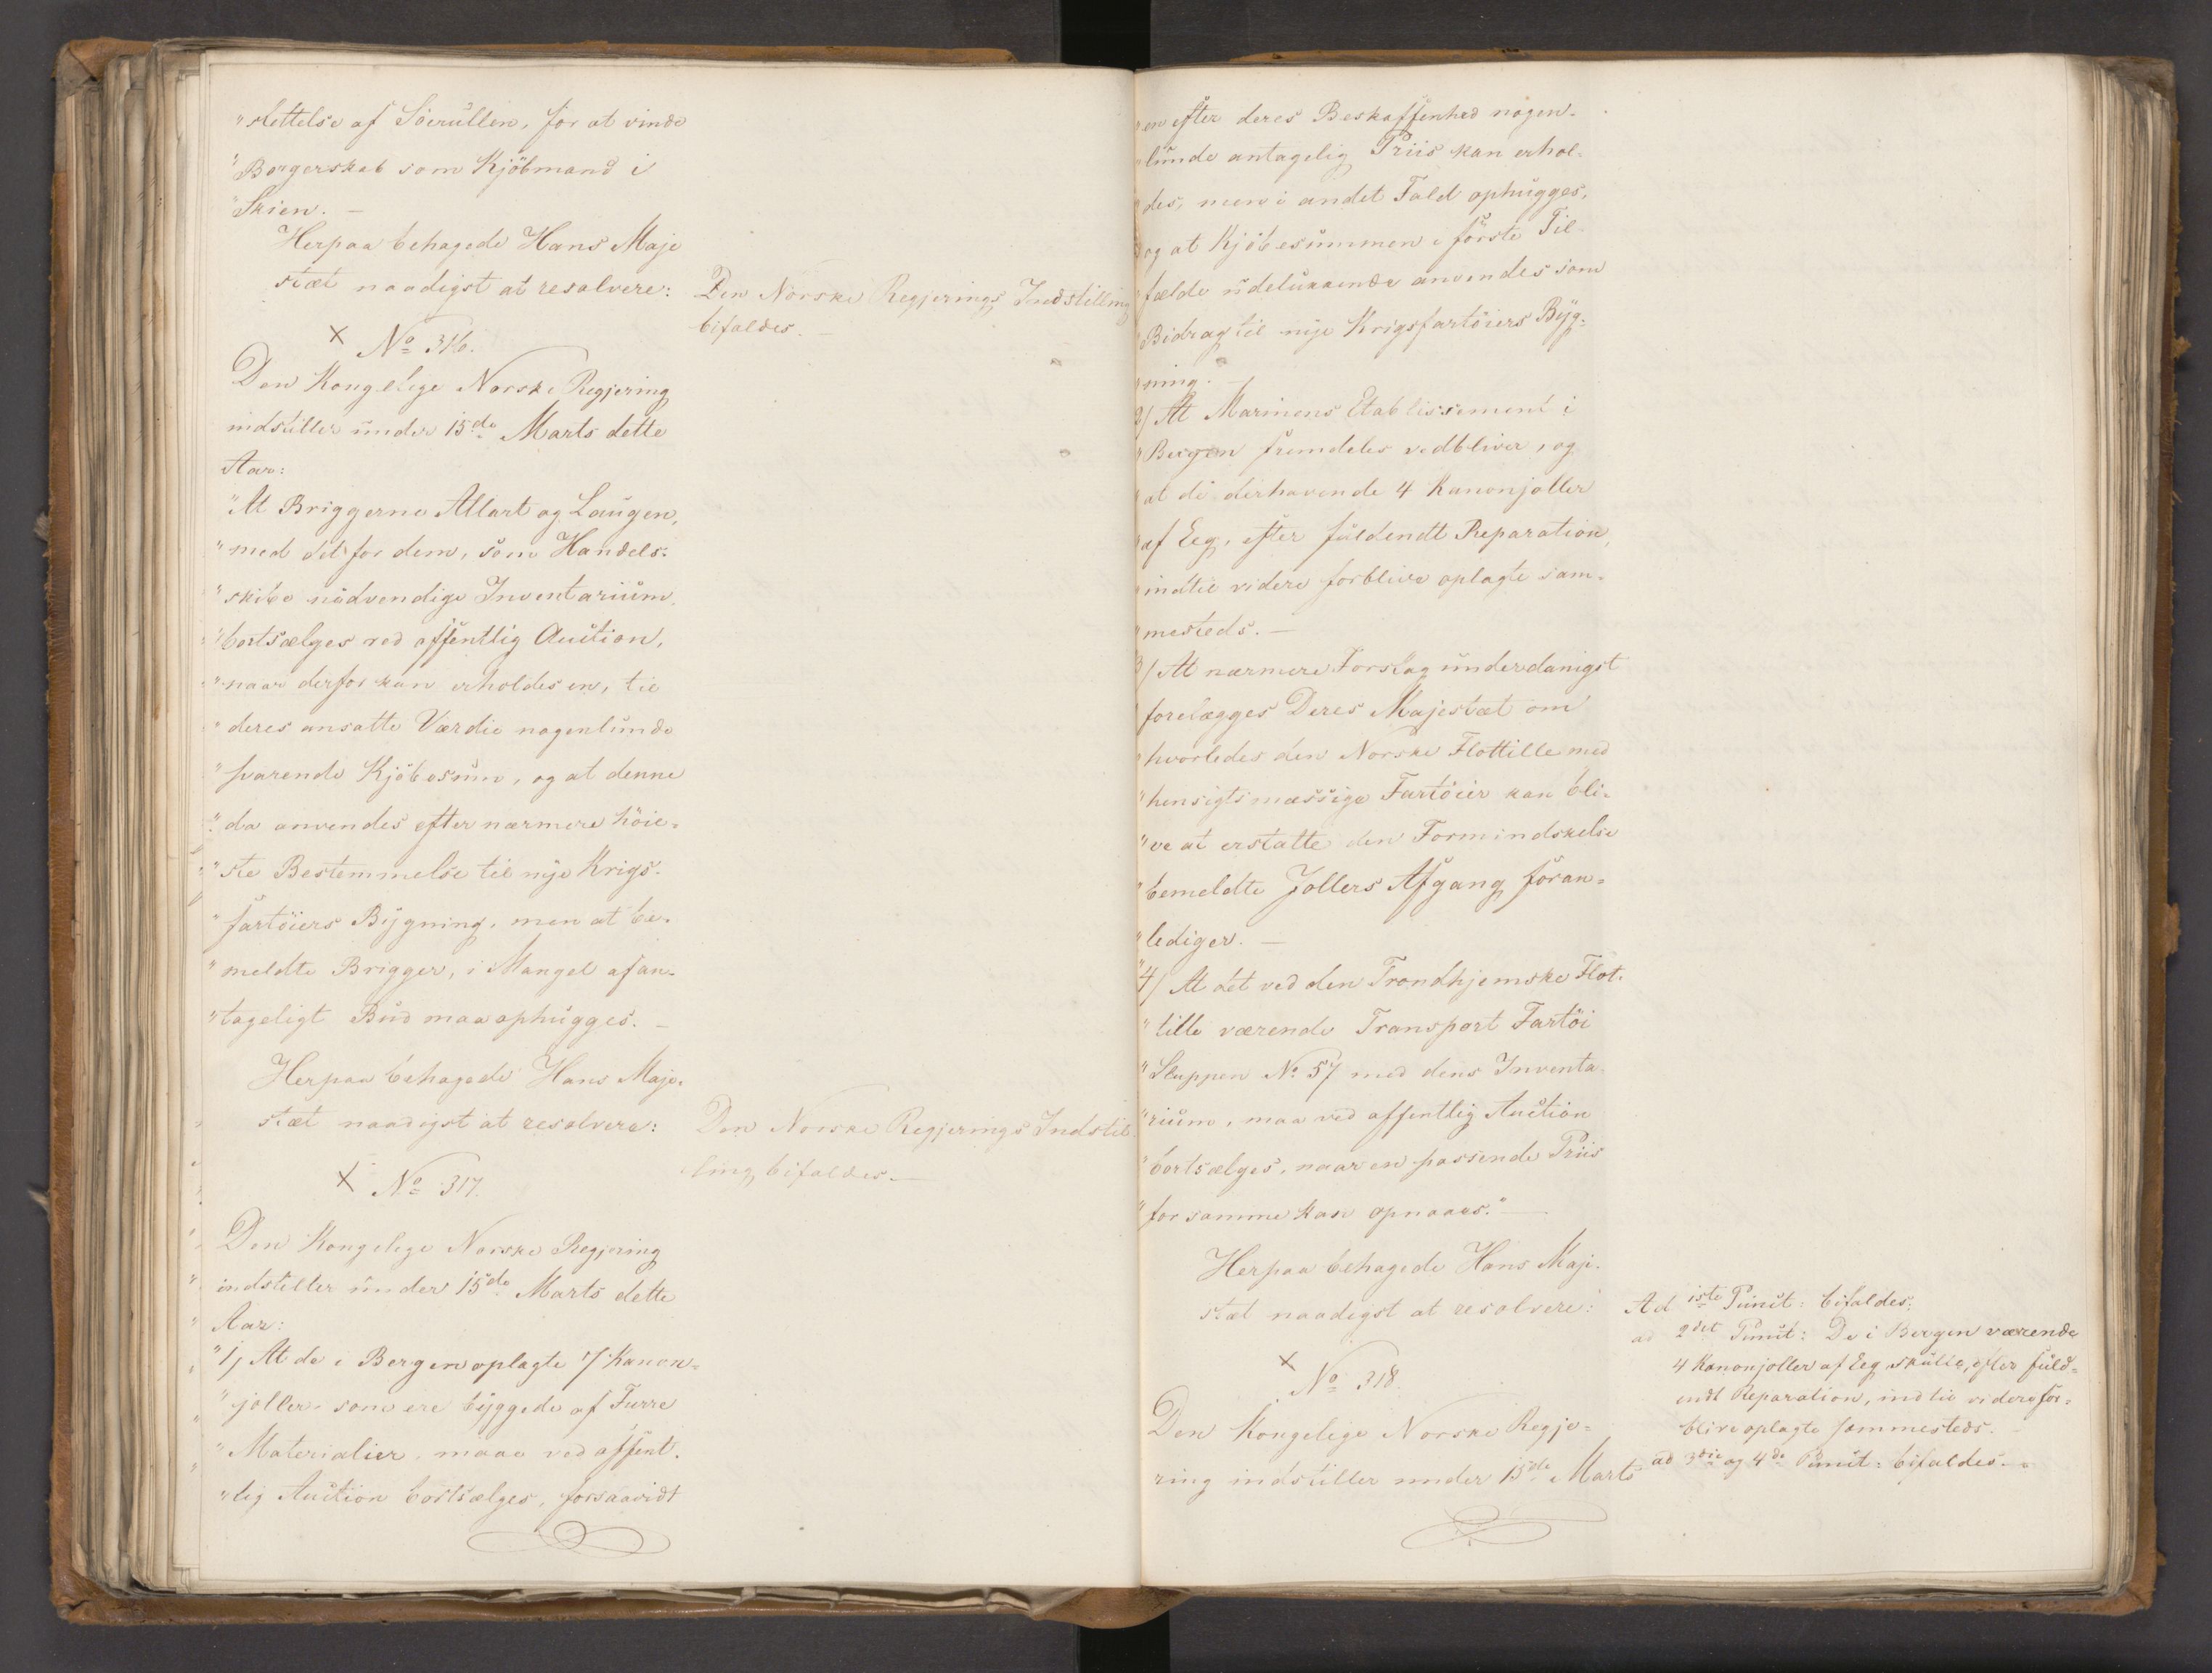 "slettelse af Söerullen, for at vinde
"Borgerskab som Kjöbmand i
"Skien. —
Herpaa behagede Hans Maje
stæt naadigst at resolvere:
Den Norske Regjerings Indstilling
bifaldes. —
× No 316.
Den Kongelige Norske Regjering
indstiller under 15de Marts dette
Aar:
"At Briggerne Allart og Laugen,
"med det for dem, som Handels-
"skibe nødvendige Inventarium,
"bortsælges ved offentlig Auction,
"naar derfor kan erholdes en, til
"deres ansatte Værdie nogenlunde
"svarende Kjöbesum, og at denne
"da anvendes efter nærmere höie-
"ste Bestemmelse til nye Krigs-
"fartöiers Bygning, men at be-
"meldte Brigger, i Mangel af an-
"tageligt Bud maa ophugges. —
Herpaa behagede Hans Maje-
stæt naadigst at resolvere:
Den Norske Regjerings Indstil-
ling bifaldes. —
× No 317.
Den Kongelige Norske Regjering
indstiller under 15de Marts dette
Aar:
"1/ At de i Bergen oplagte 7 Kanon-
"joller, som ere byggede af Furre
"Materialier, maae ved offent-
"lig Auction bortsælges, forsaavidt
"en efter deres Beskaffenhed nogen-
"lunde antagelig Priis kan erhol-
"des, men i andet Fald ophugges,
"og at Kjöbesummen i förste Til-
"fælde udelukkende anvendes som
"Bidrag til nye Krigsfartöiers Byg-
"ning. —
2/ At Marinens Etablissement i
"Bergen fremdeles vedbliver, og
"at de derhavende 4 Kanonjoller
"af Eeg, efter fuldendt Reparation,
"indtil videre forblive oplagte sam-
"mesteds. —
3/ At nærmere Forslag underdanigst
"forelægges Deres Majestæt om
"hvorledes den Norske Flottille med
"hensigtsmæssige Fartöier kan bli-
"ve at erstatte den Formindskelse
"bemeldte Jollers Afgang foran-
"lediger. —
"4/ At det ved den Trondhjemske Flot-
"tille værende Transport Fartöi
"Sluppen No 57 med dens Inventa-
"rium, maa ved offentlig Auction
"bortsælges, naar en passende Priis
"for samme kan opnaaes." —
Herpaa behagede Hans Maje-
stæt naadigst at resolvere:
Ad 1ste Punct: bifaldes;
ad 2det Punct: De i Bergen værende
4 Kanonjoller af Eeg skulle, efter fuld-
endt Reparation, indtil videre for-
blive oplagte sammesteds. —
ad 3die og 4de Punct: bifaldes. —
× No 318.
Den Kongelige Norske Regje-
ring indstiller under 15de Marts